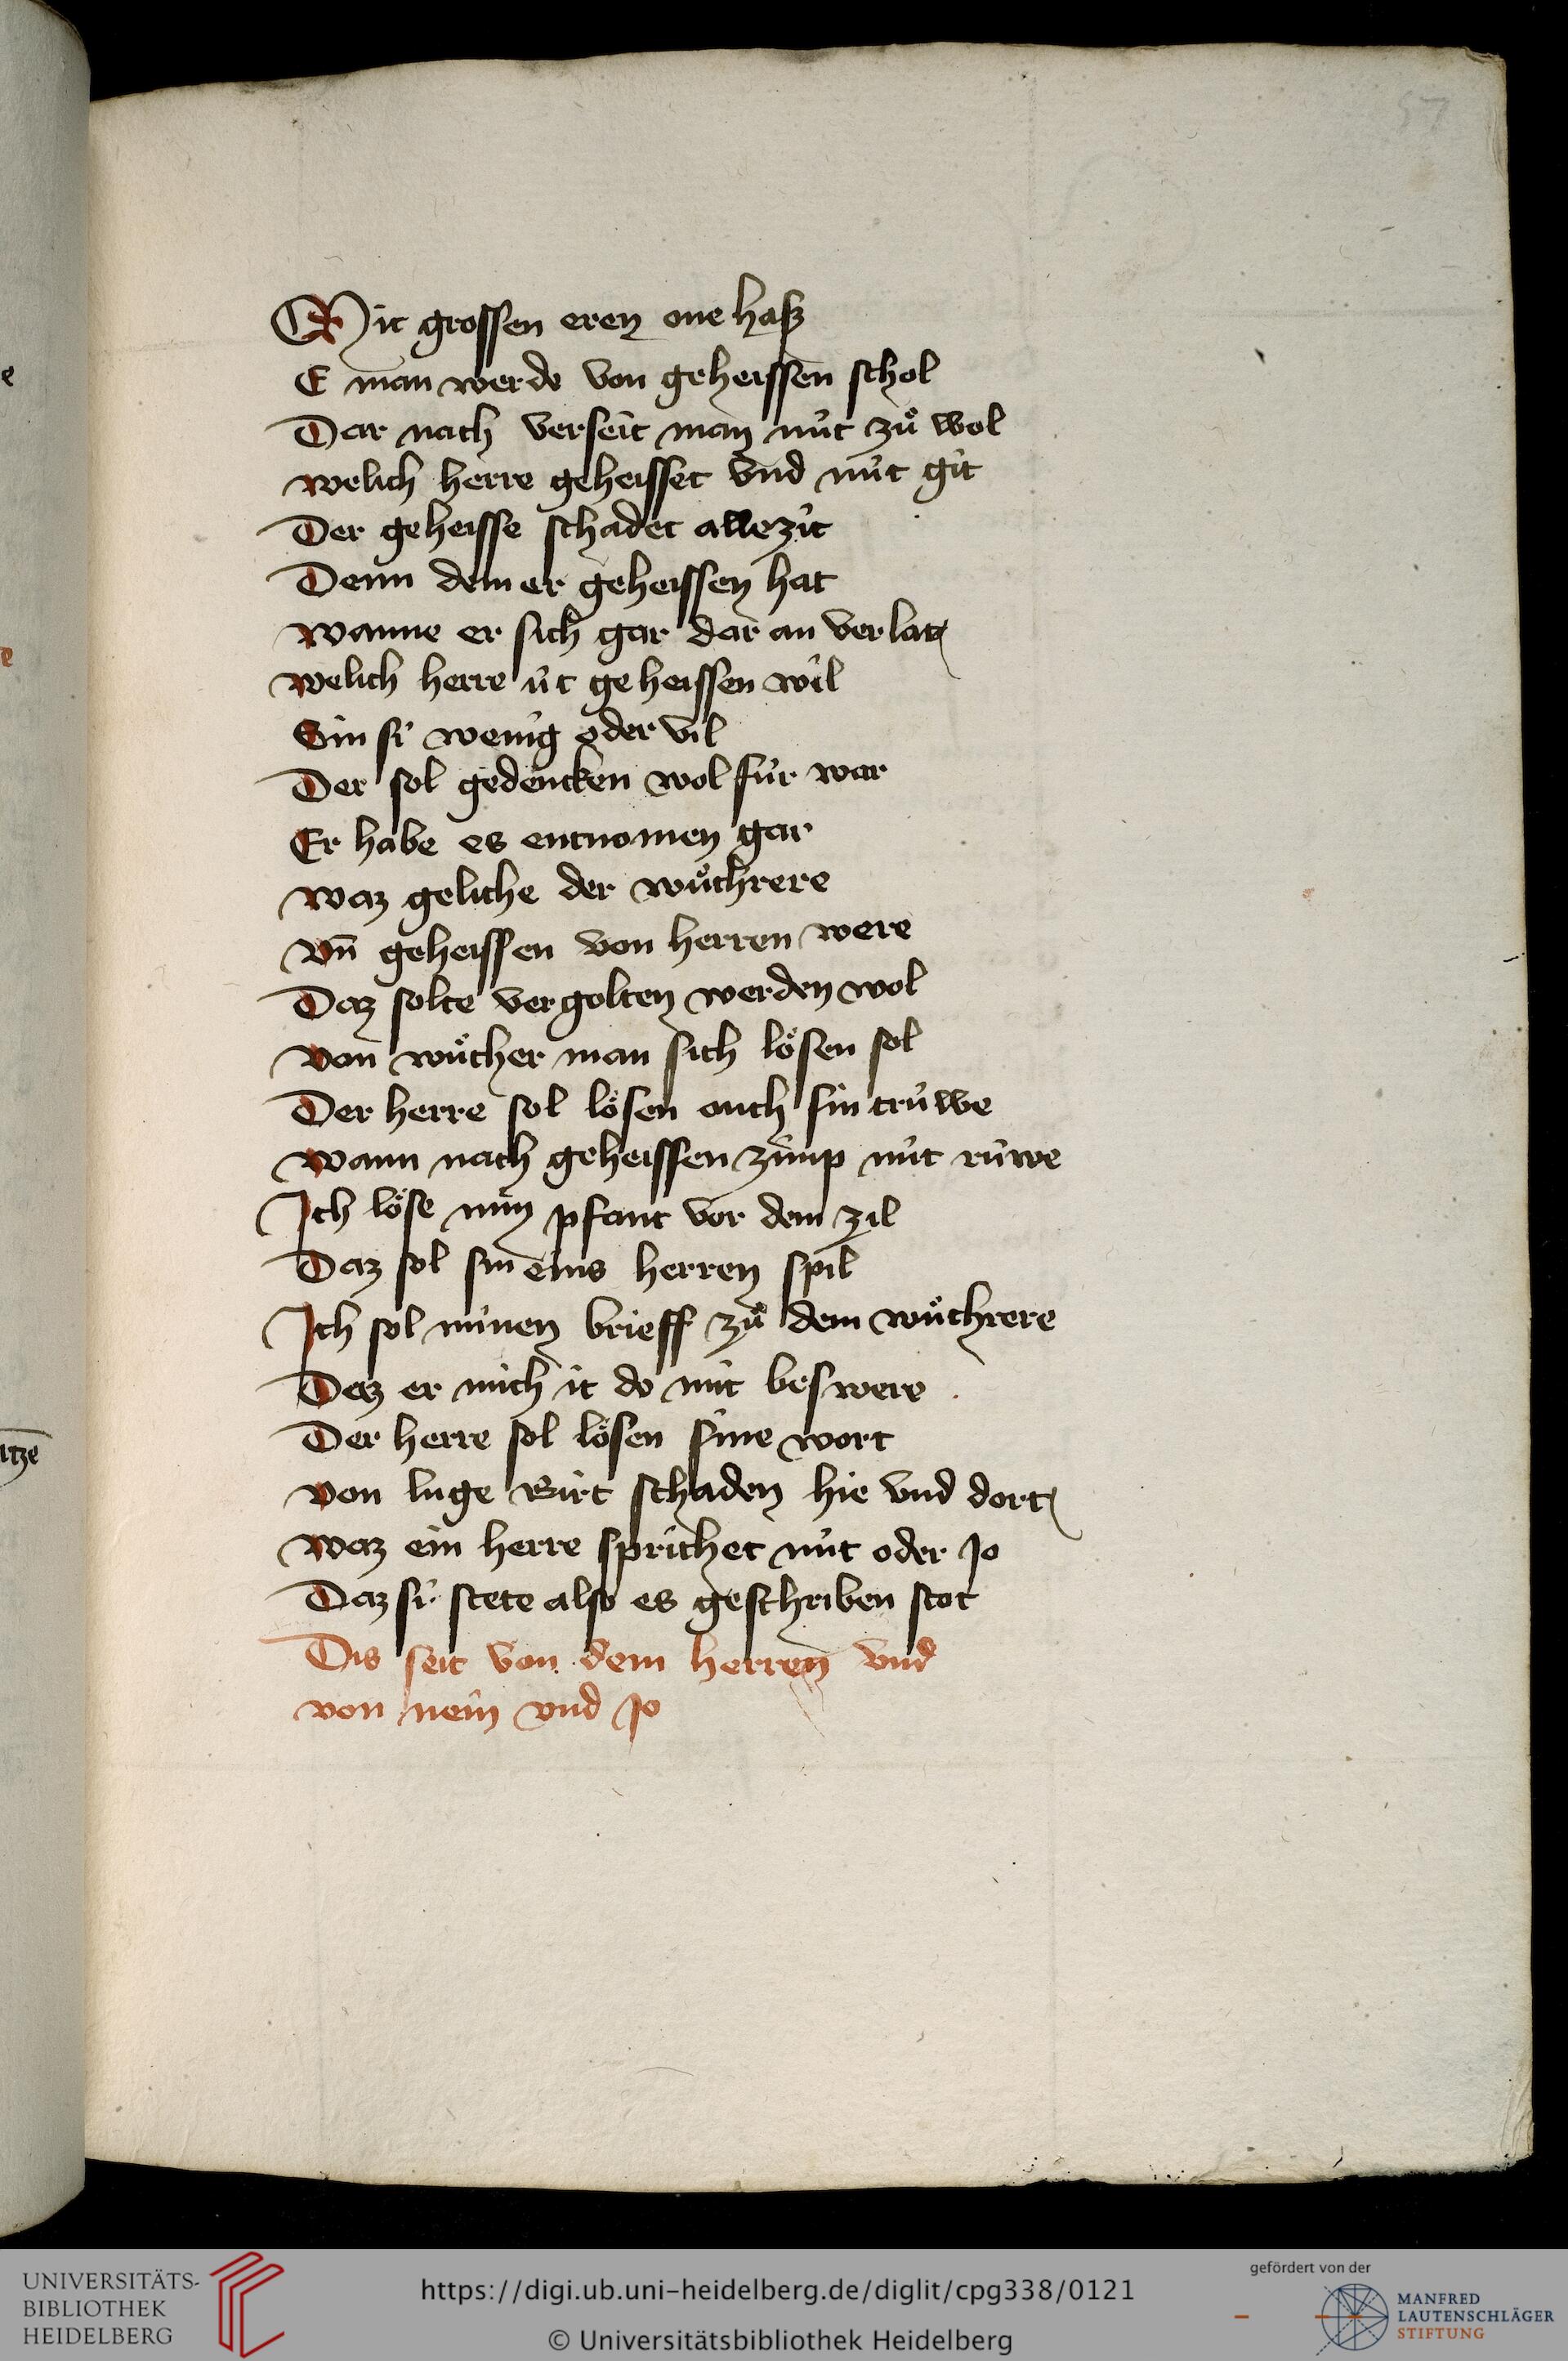 57
Mit grossen eren one hasz
E man werde von geheissen schol
Dar nach verseit man nüt zuͦ wol
welich herre geheisset vnd nüt git
Der geheisse schadet allezit
Denn dem er geheissen hat
wanne er sich gar dar an verlat
welich herre üt geheissen wil
Sin si wenig oder vil
Der sol gedencken wol für war
Er habe es entnomen gar
waz geliche der wuͦchrere
Vn̄ geheissen von herren were
Daz solte vergolten werden wol
von wuͦcher man sich lösen sol
Der herre sol lösen ouch sin trüwe
wann nach geheissen zimp nüt rüwe
Ich löse min pfant vor dem zil
Daz sol sin eins herren spil
Ich sol minen brieff zuͦ dem wuͦchrere
Daz er mich it do mit beswere
Der herre sol lösen sine wort
von luge birt schaden hie vnd dort
waz ein herre sprichet nüt oder Jo
Daz si stete also es geschriben stot
Dis seit von dem herren vnd
von nein vnd Jo
e
e
itze
UNIVERSITÄTS-
BIBLIOTHEK
HEIDELBERG
https://digi.ub.uni-heidelberg.de/diglit/cpg338/0121
© Universitätsbibliothek Heidelberg
gefördert von der
MANFRED
LAUTENSCHLÄGER
STIFTUNG